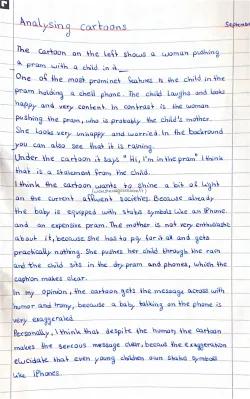 Analysing cartoons
Septembe
The cartoon on the left shows a woman pushing
a pram with a child in it.
One of the most prominet features is the child in the
pram holding a chell phone. The child laughs and looks
happy and very content. In contrast is the woman
pushing the pram, who is probably the child's mother.
She looks very unhappy and worried. In the backround
you can also see that it is raining.
Under the cartoon it says "Hi, I'm in the pram" I think
that is a statement from the child.
I think the cartoon wants to shine a bit of light
on the current affluent societies. Because already
the baby is equipped with status symbols like an iPhone
and an expensive pram. The mother is not very enthusiastic
about it, because she has to pay for it all and gets
practically nothing. She pushes her child through the rain
and the child sits in the dry pram and phones, which the
caption makes clear.
In my opinion, the cartoon gets the message across with
humor and irony, because a baby talking on the phone is
very exaggerated.
Personally, I think that despite the humor, the cartoon
makes the sercous message clear, becaus the exaggeration
elucidate that even young children own status symbols
like iPhones.